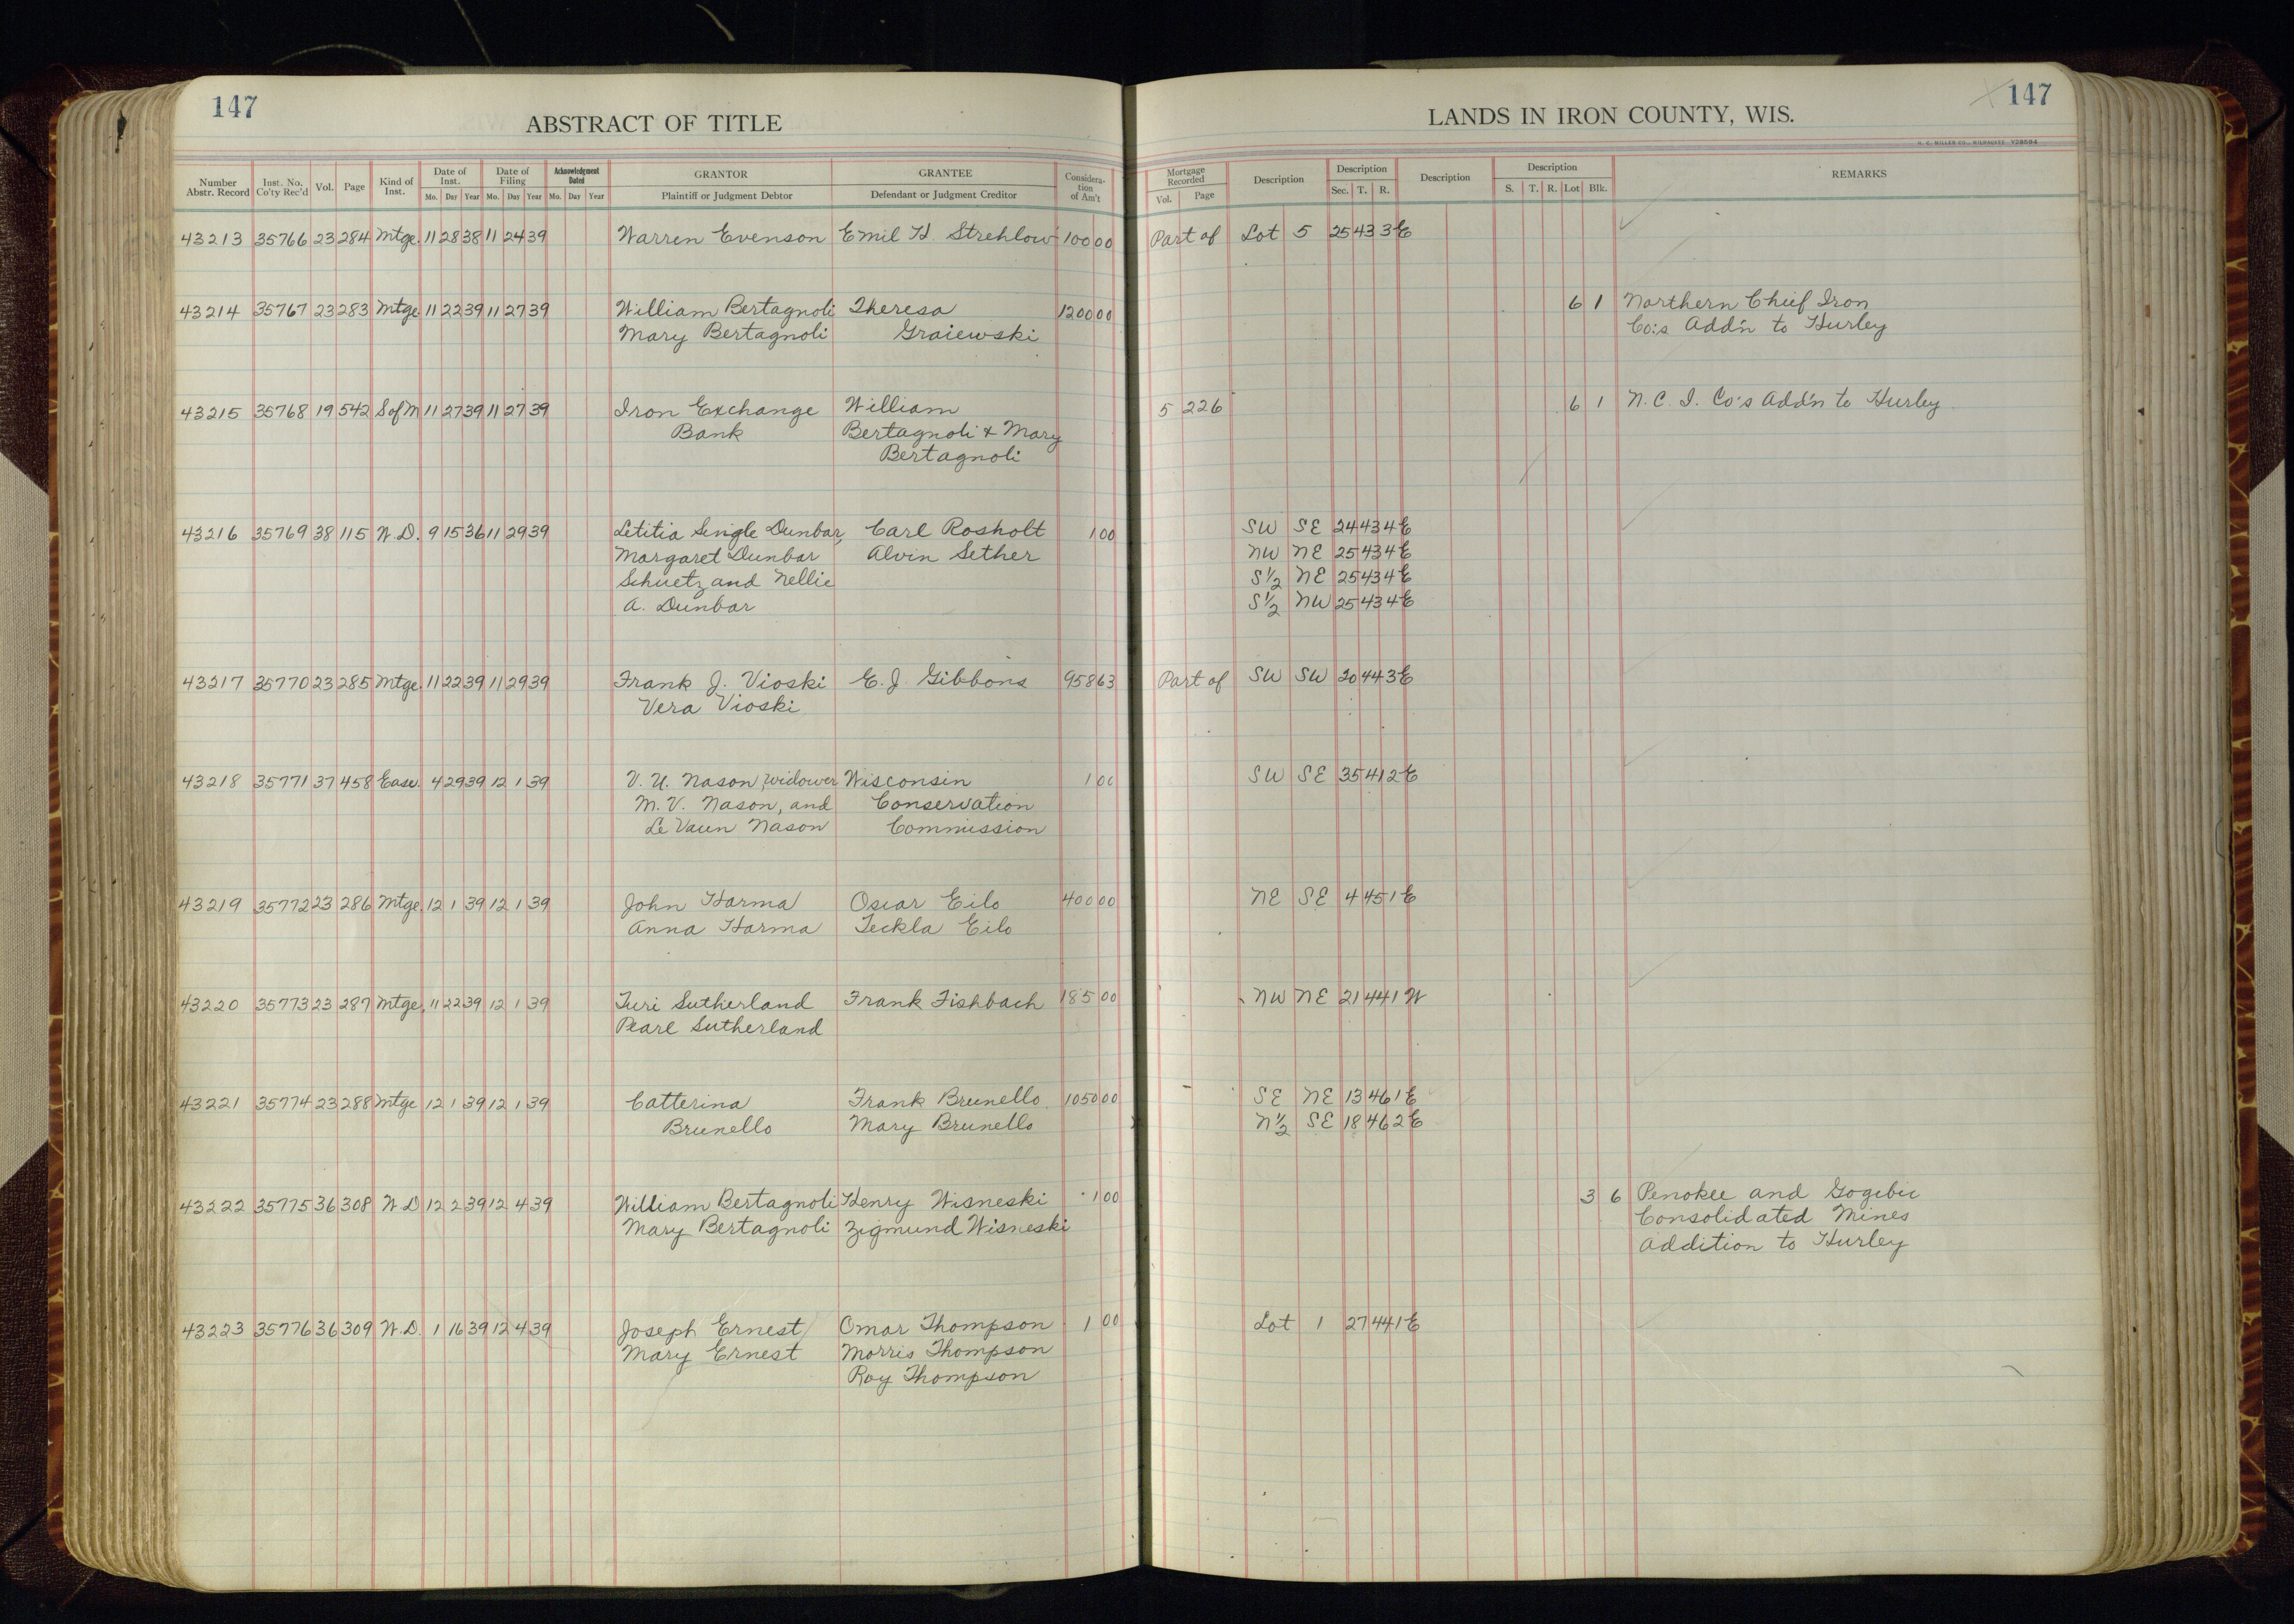 147
ABSTRACT OF TITLE
LANDS IN IRON COUNTY, WIS.
147
H. C. MILLER CO., MILWAUKEE V28594
Number Abstr. Record Inst. No. Co'ty Rec'd Vol. Page Kind of Inst. Date of Inst. Mo. Day Year Date of Filing Mo. Day Year Acknowledgment Dated Mo. Day Year GRANTOR Plaintiff or Judgment Debtor GRANTEE Defendant or Judgment Creditor Considera-tion of Am't Mortgage Recorded Vol. Page Description Description Sec. T. R. Description Description S. T. R. Lot Blk. REMARKS
43213 35766 23 284 Mtge. 11 28 38 11 24 39 Warren Evenson Emil H. Strehlow 100 00 Part of Lot 5 25 43 3E
43214 35767 23 283 Mtge 11 22 39 11 27 39 William Bertagnoli Theresa 1200 00 6 1 Northern Chief Iron
Mary Bertagnoli Graiewski Co:s Add'n to Hurley
43215 35768 19 542 S of M 11 27 39 11 27 39 Iron Exchange William 5 226 6 1 N. C. I. Co's Add'n to Hurley
Bank Bertagnoli & Mary
Bertagnoli
43216 35769 38 115 W. D. 9 15 36 11 29 39 Letitia Single Dunbar, Carl Rosholt 1 00 SW SE 24 43 4E
Margaret Dunbar Alvin Sether NW NE 25 43 4E
Schuetz and Nellie S½ NE 25 43 4E
A. Dunbar S½ NW 25 43 4E
43217 35770 23 285 Mtge. 11 22 39 11 29 39 Frank J. Vioski E. J. Gibbons 958 63 Part of SW SW 20 44 3E
Vera Vioski
43218 35771 37 458 Ease. 4 29 39 12 1 39 V. U. Nason, widower Wisconsin 1 00 SW SE 35 41 2E
M. V. Nason, and Conservation
Le Vaun Nason Commission
43219 35772 23 286 Mtge. 12 1 39 12 1 39 John Harma Oscar Eilo 400 00 NE SE 4 45 1E
Anna Harma Teckla Eilo
43220 35773 23 287 Mtge. 11 22 39 12 1 39 Turi Sutherland Frank Fishbach 185 00 NW NE 21 44 1W
Pearl Sutherland
43221 35774 23 288 Mtge 12 1 39 12 1 39 Catterina Frank Brunello 1050 00 SE NE 13 46 1E
Brunello Mary Brunello N½ SE 18 46 2E
43222 35775 36 308 W D 12 2 39 12 4 39 William Bertagnoli Henry Wisneski 1 00 3 6 Penokee and Gogebic
Mary Bertagnoli Zigmund Wisneski Consolidated Mines
Addition to Hurley
43223 35776 36 309 W. D. 1 16 39 12 4 39 Joseph Ernest Omar Thompson 1 00 Lot 1 27 44 1E
Mary Ernest Morris Thompson
Roy Thompson